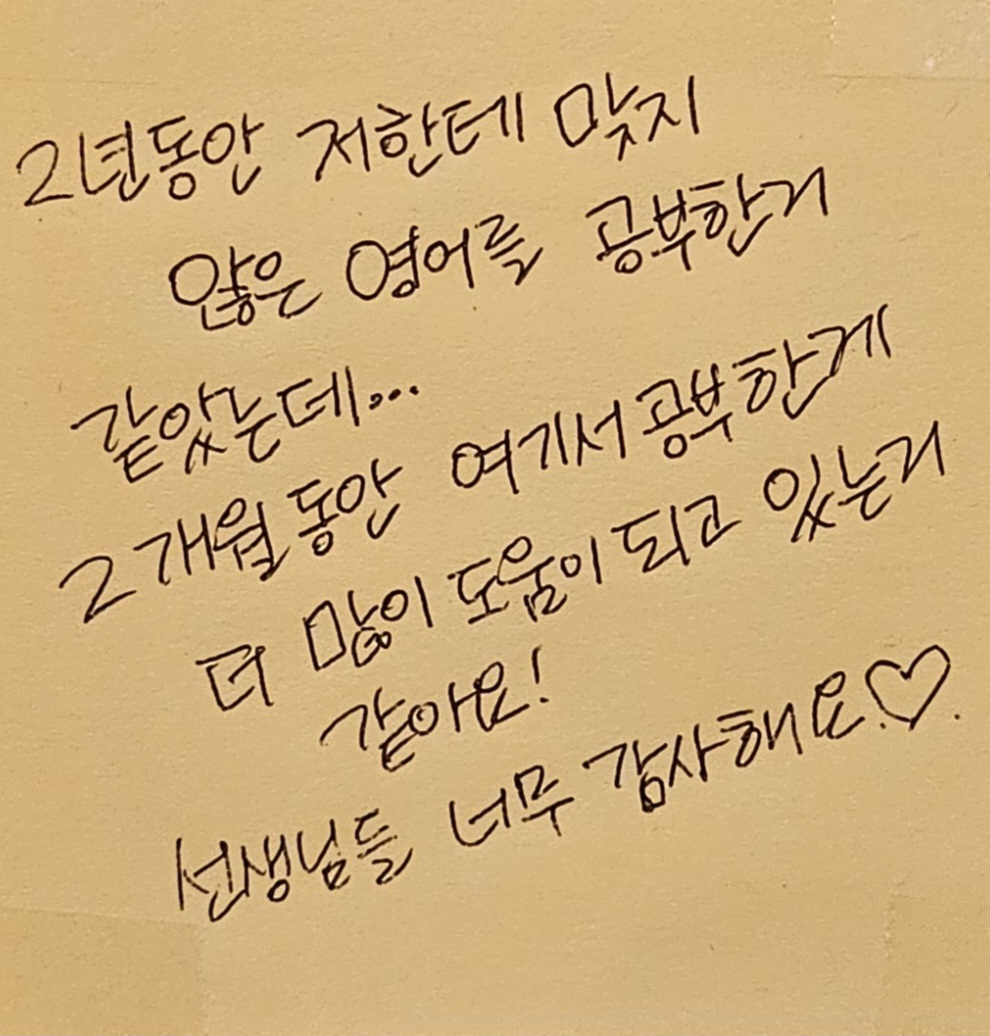 2년동안 저한테 맞지
않은 영어를 공부한거
같았는데...
2개월동안 여기서 공부한게
더 많이 도움이 되고 있는거
같아요!
선생님들 너무 감사해요.♡.